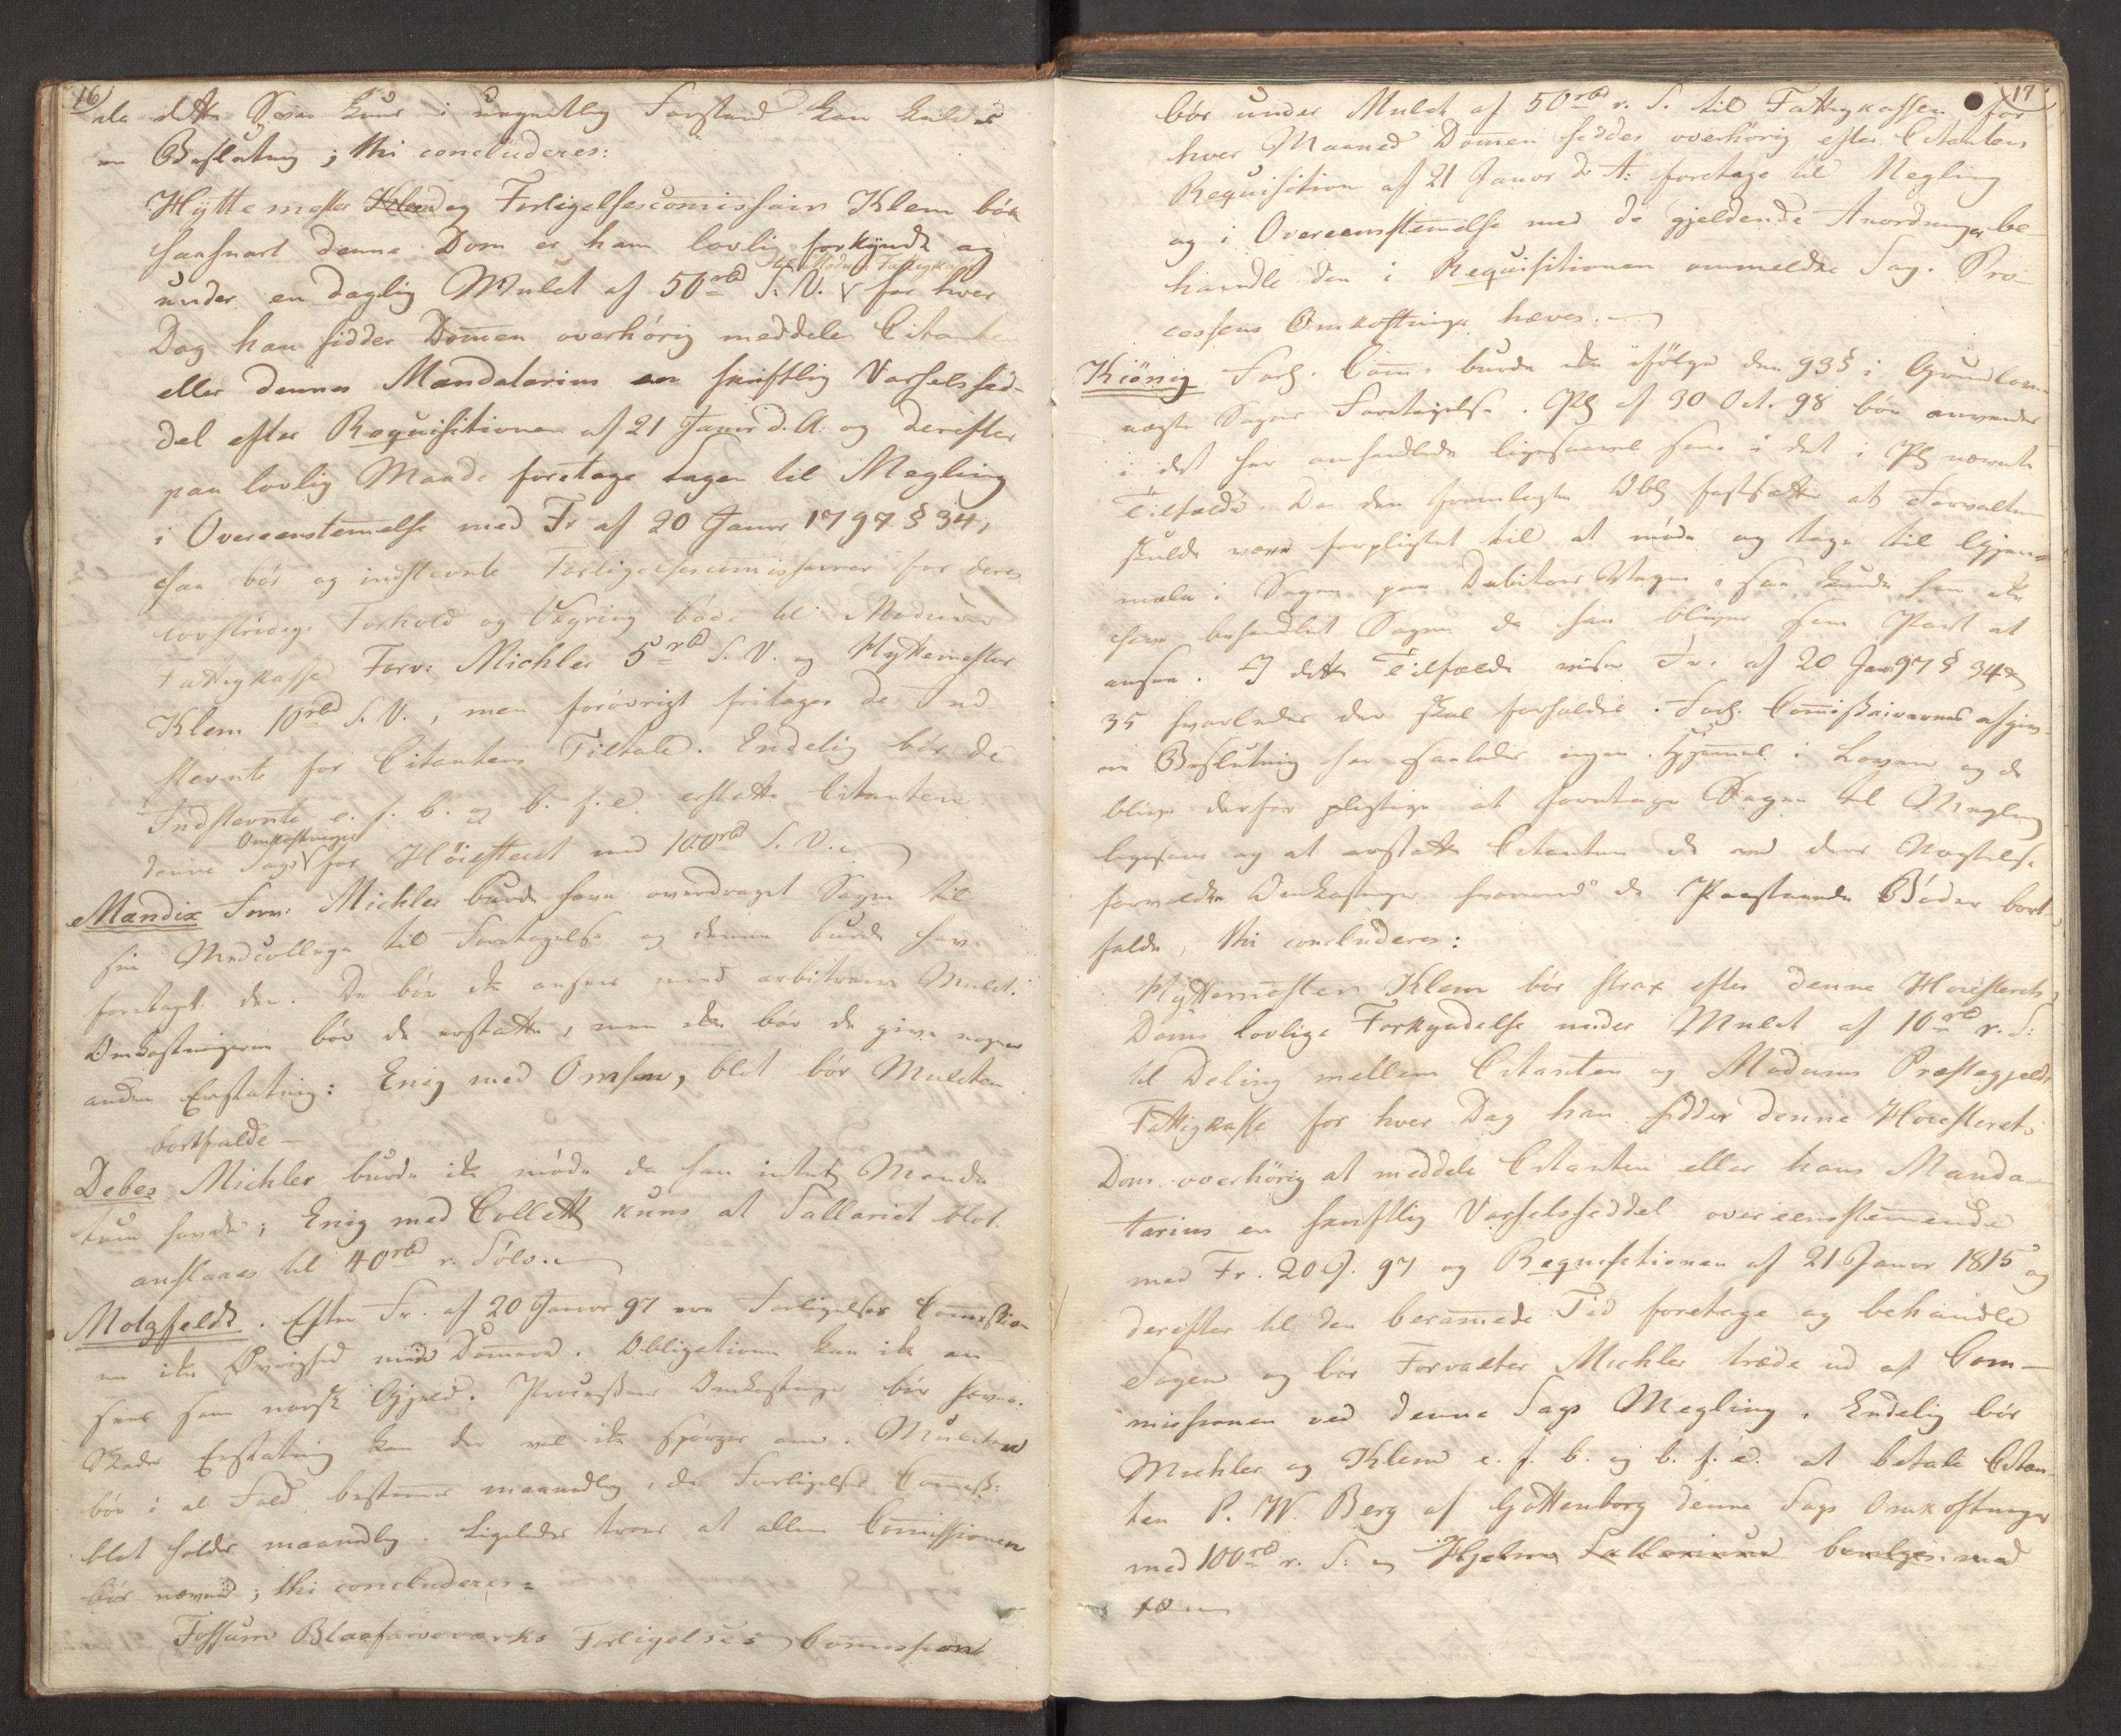 16
da dette Svar kuns i uegentlig Forstand kan kaldes
en Beslutning; thi concluderes:
Hyttemester Klem og Forligelsescomissair Klem bör
saasnart denne Dom er ham lovlig forkyndt og
under en daglig Mulct af 50 rbd S. V. til Modums Fattigkasse for hver
Dag han sidder Domen overhörig meddele Citanten
eller dennes Mandatarius en skriftlig Varselssed-
del efter Requisitionen af 21 Januar d. A. og derefter
paa lovlig Maade foretage Sagen til Megling
i Overeenstemelse med Fr af 20 Januar 1797 § 34,
saa bör og indstevnte Forligelsescomissairer for deres
lovstridige Forhold og Vægring böde til Modums
Fattigkasse Forv: Michler 5 rbd S. V. og Hyttemester
Klem 10 rbd S. V., men forövrigt fritages de Ind-
stevnte for Citantens Tiltale. Endelig bör de
Indstevnte e. f. b. og b. f. e. erstatte Citanten
denne Sags Omkostninger for Höiesteret med 100 rbd S. V.
Mandix Forv: Michler burde have overdraget Sagen til
sin Medcollega til Foretagelse og denne burde have
foretaget den. De bör ikke ansees med arbitrair Mulct.
Omkostningerne bör de erstatte, men ikke bör de give nogen
anden Erstatning: Enig med Omsen, blot bör Mulcten
bortfalde
Debes Michler burde ikke möde da han intet Manda-
tum havde; Enig med Collett kuns at Sallariet blot
anslaaes til 40 rbd r. Sölv.
Motzfeldt. Efter Fr. af 20 Januar 97 ere Forligelses Comission
en ikke Øvrighed men Domere. Obligationen kan ikke an-
sees som norsk Gjeld. Processens Omkostninger bör hæves.
Skades Erstatning kan der vel ikke spörges om. Mulcten
bör i al Fald bestemmes maanedlig, da Forligelses Comiss:
blot holdes maanedlig. Ligeledes troer at allene Comissionen
bör nævnes; thi concluderes:
Fossum Blaafarveværks Forligelses Comission
17
bör under Mulct af 50 rbd r. S. til Fattigkassen for
hver Maaned Domen sidder overhörig efter Citantens
Requisition af 21 Januar d: A: foretage til Megling
og i Overeenstemelse med de gjeldende Anordninger be-
handle den i Requisitionen ommeldte Sag. Pro-
cessens Omkostninger hæves.
Kiönig Forl. Com. burde ikke ifölge den 93 § i Grundloven
nægte Sagens Foretagelse. Pl af 30 Oct. 98 bör anvendes
i det her omhandlede ligesaavel som i det i Pl nævnte
Tilfælde. Da den fremlagte Obl fastsætter at Forvalteren
skulde være forpligtet til at möde og tage til Gjen-
mæle i Sagen paa Debitors Vegne, saa kunde han ikke
have behandlet Sagen da han bliver som Part at
ansee. I dette Tilfælde viser Fr. af 20 Jan 97 § 34 og
35 hvorledes der skal forholdes. Forl. Comissairernes afgiv-
ne Beslutning har saaledes ingen Hjemmel i Loven og de
blive derfor pligtige at foretage Sagen til Megling
ligesom og at erstatte Citanten de ved deres Nægtelse
forvoldte Omkostninger hvorimod de Paastaaende Böder bort-
falde, thi concluderes:
Hyttemester Klem bör strax efter denne Höiesterets
Doms lovlige Forkyndelse under Mulct af 10 rbd r. S:
til Deling mellem Citanten og Modums Præstegjelds
Fattigkasse for hver Dag han sidder denne Höiesterets
Dom overhörig at meddele Citanten eller hans Manda-
tarius en skriftlig Varselsseddel overeenstemmende
med Fr. 20 J. 97 og Requisitionen af 21 Januar 1815 og
derefter til den beramede Tid foretage og behandle
Sagen og bör Forvalter Michler træde ud af Com-
missionen ved denne Sags Megling. Endelig bör
Michler og Klem e. f. b. og b. f. e. at betale Citan-
ten P. W. Berg af Gottenborg denne Sags Omkostninger
med 100 rbd r. S: og Hjelms Sallarium bevilges med
40